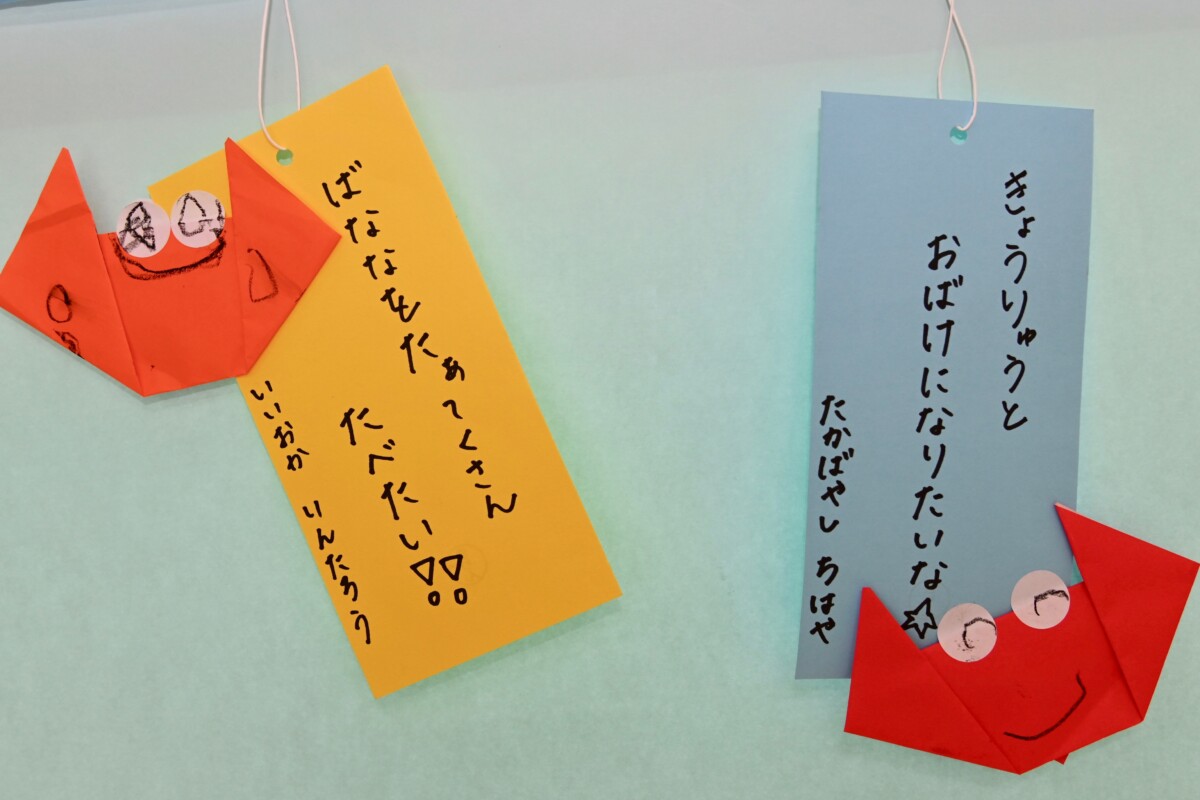 ばななをたぁてくさん
たべたい!!
いいおか いんたろう
きょうりゅうと
おばけになりたいな☆
たかばやし ちはや